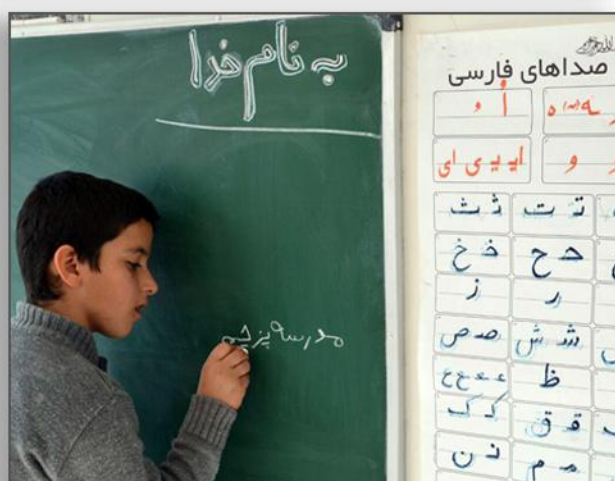 به نام خدا
مدرسه پرچم
صداهای فارسی
اُ و
ـه (ـه) ه
ایـ یـ ی ای
و
ثـ ث
تـ ت
خـ خ
حـ ح
ز
ر
صـ ص
شـ ش
عـ ـعـ ـع ع
ظ
کـ ک
قـ ق
نـ ن
مـ م